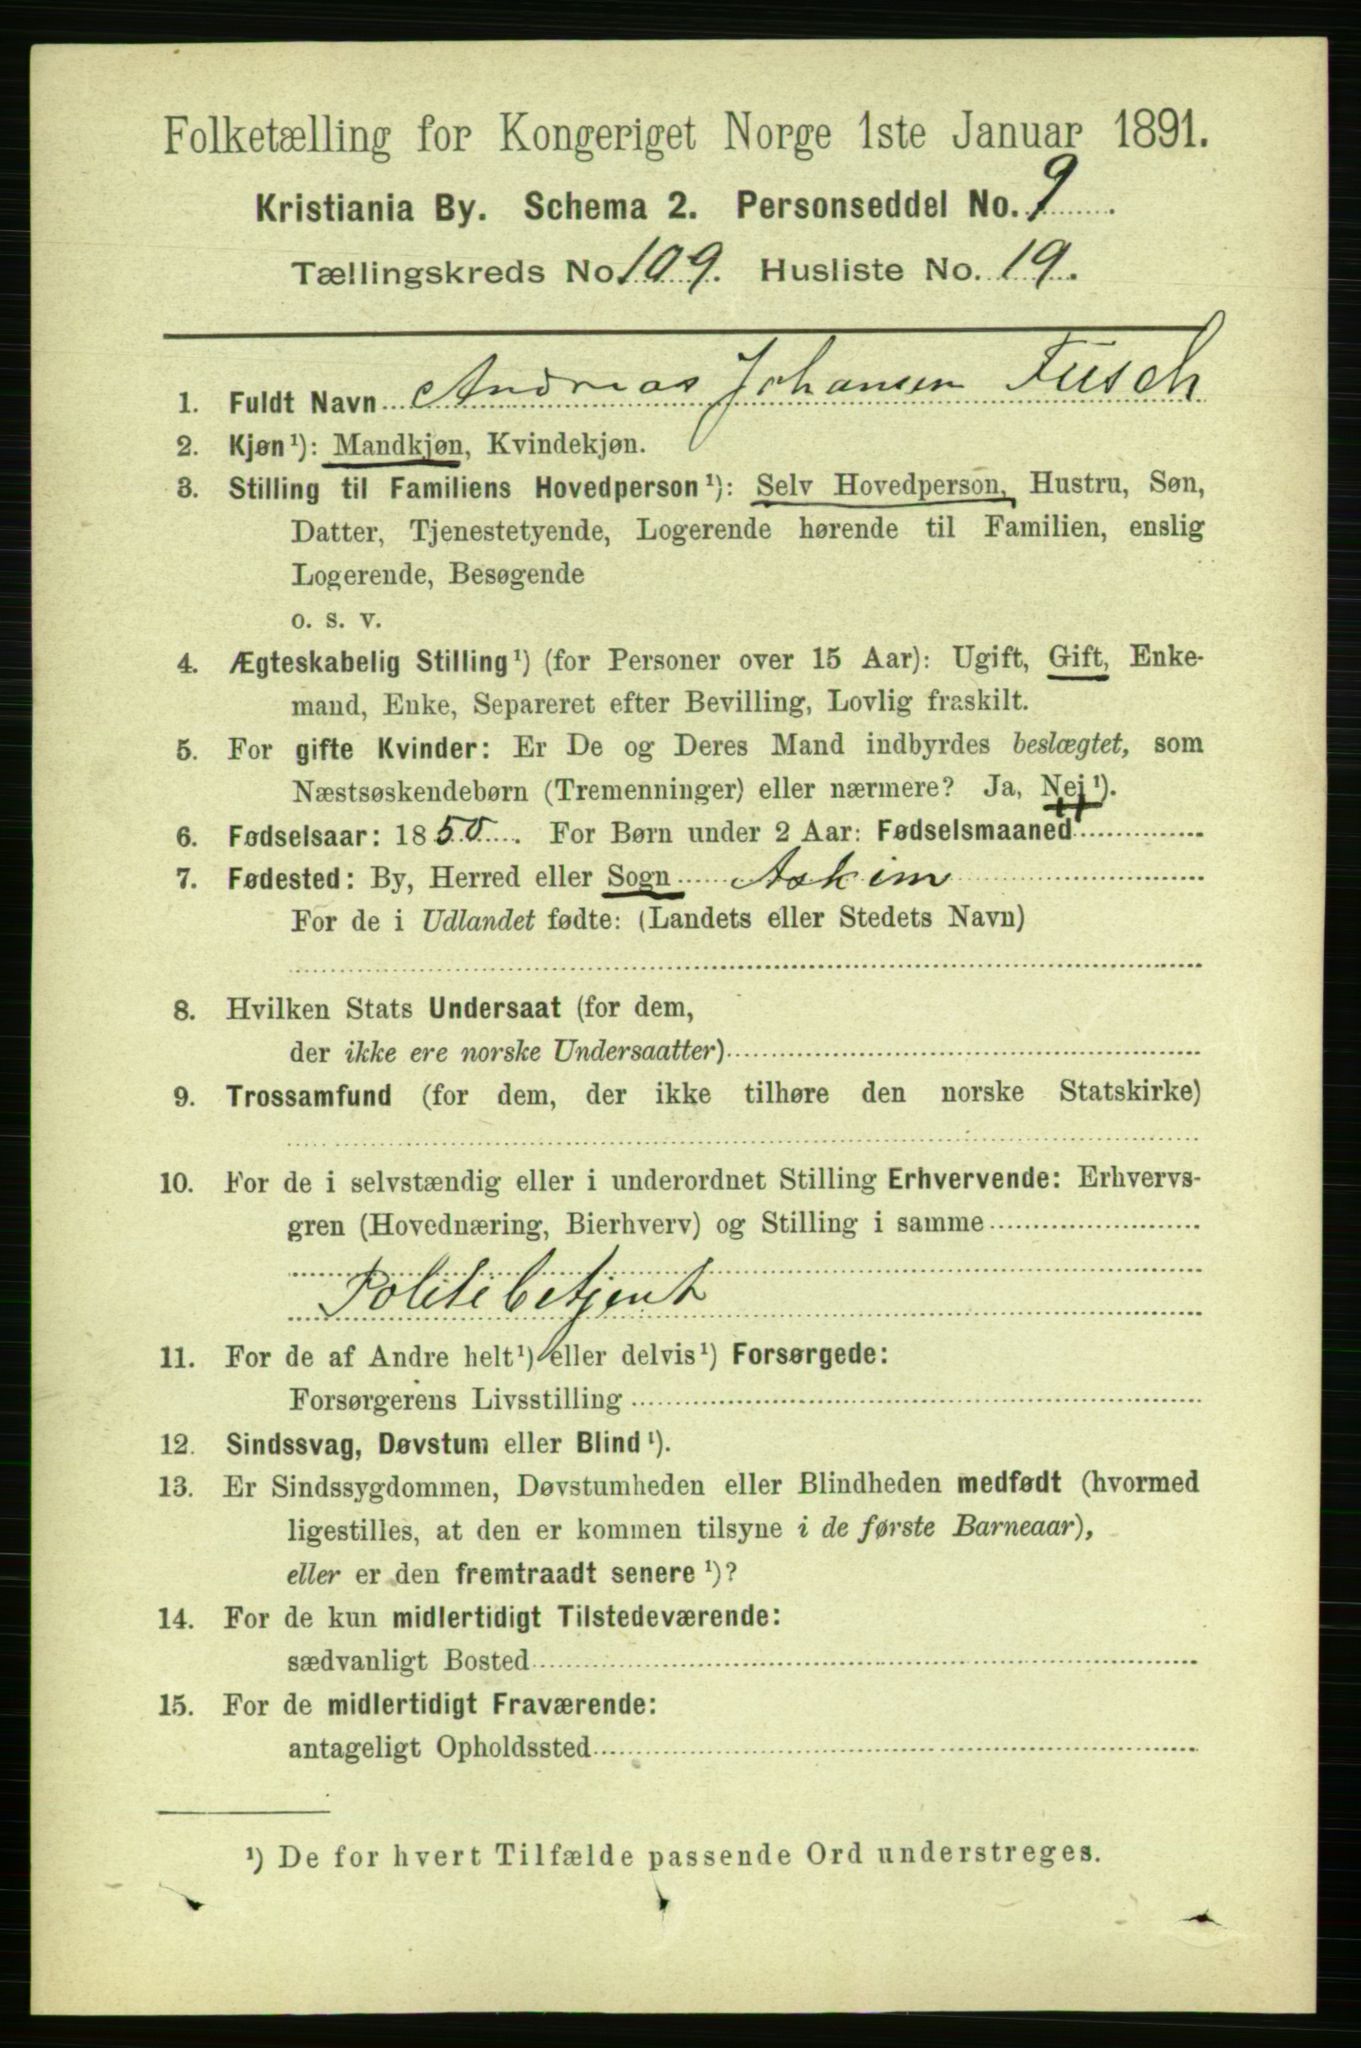 Folketælling for Kongeriget Norge 1ste Januar 1891.
Kristiania By. Schema 2. Personseddel No. 9
Tællingskreds No 109. Husliste No. 19.
1. Fuldt Navn Andreas Johansen Fusch
2. Kjøn¹): Mandkjøn, Kvindekjøn.
3. Stilling til Familiens Hovedperson¹): Selv Hovedperson, Hustru, Søn,
Datter, Tjenestetyende, Logerende hørende til Familien, enslig
Logerende, Besøgende
o. s. v.
4. Ægteskabelig Stilling¹) (for Personer over 15 Aar): Ugift, Gift, Enke-
mand, Enke, Separeret efter Bevilling, Lovlig fraskilt.
5. For gifte Kvinder: Er De og Deres Mand indbyrdes beslægtet, som
Næstsøskendebørn (Tremenninger) eller nærmere? Ja, Nej¹).
6. Fødselsaar: 1850. For Børn under 2 Aar: Fødselsmaaned
7. Fødested: By, Herred eller Sogn Askim
For de i Udlandet fødte: (Landets eller Stedets Navn)
8. Hvilken Stats Undersaat (for dem,
der ikke ere norske Undersaatter)
9. Trossamfund (for dem, der ikke tilhøre den norske Statskirke)
10. For de i selvstændig eller i underordnet Stilling Erhvervende: Erhvervs-
gren (Hovednæring, Bierhverv) og Stilling i samme
Politibetjent
11. For de af Andre helt¹) eller delvis¹) Forsørgede:
Forsørgerens Livsstilling
12. Sindssvag, Døvstum eller Blind¹).
13. Er Sindssygdommen, Døvstumheden eller Blindheden medfødt (hvormed
ligestilles, at den er kommen tilsyne i de første Barneaar),
eller er den fremtraadt senere¹)?
14. For de kun midlertidigt Tilstedeværende:
sædvanligt Bosted
15. For de midlertidigt Fraværende:
antageligt Opholdssted
¹) De for hvert Tilfælde passende Ord understreges.